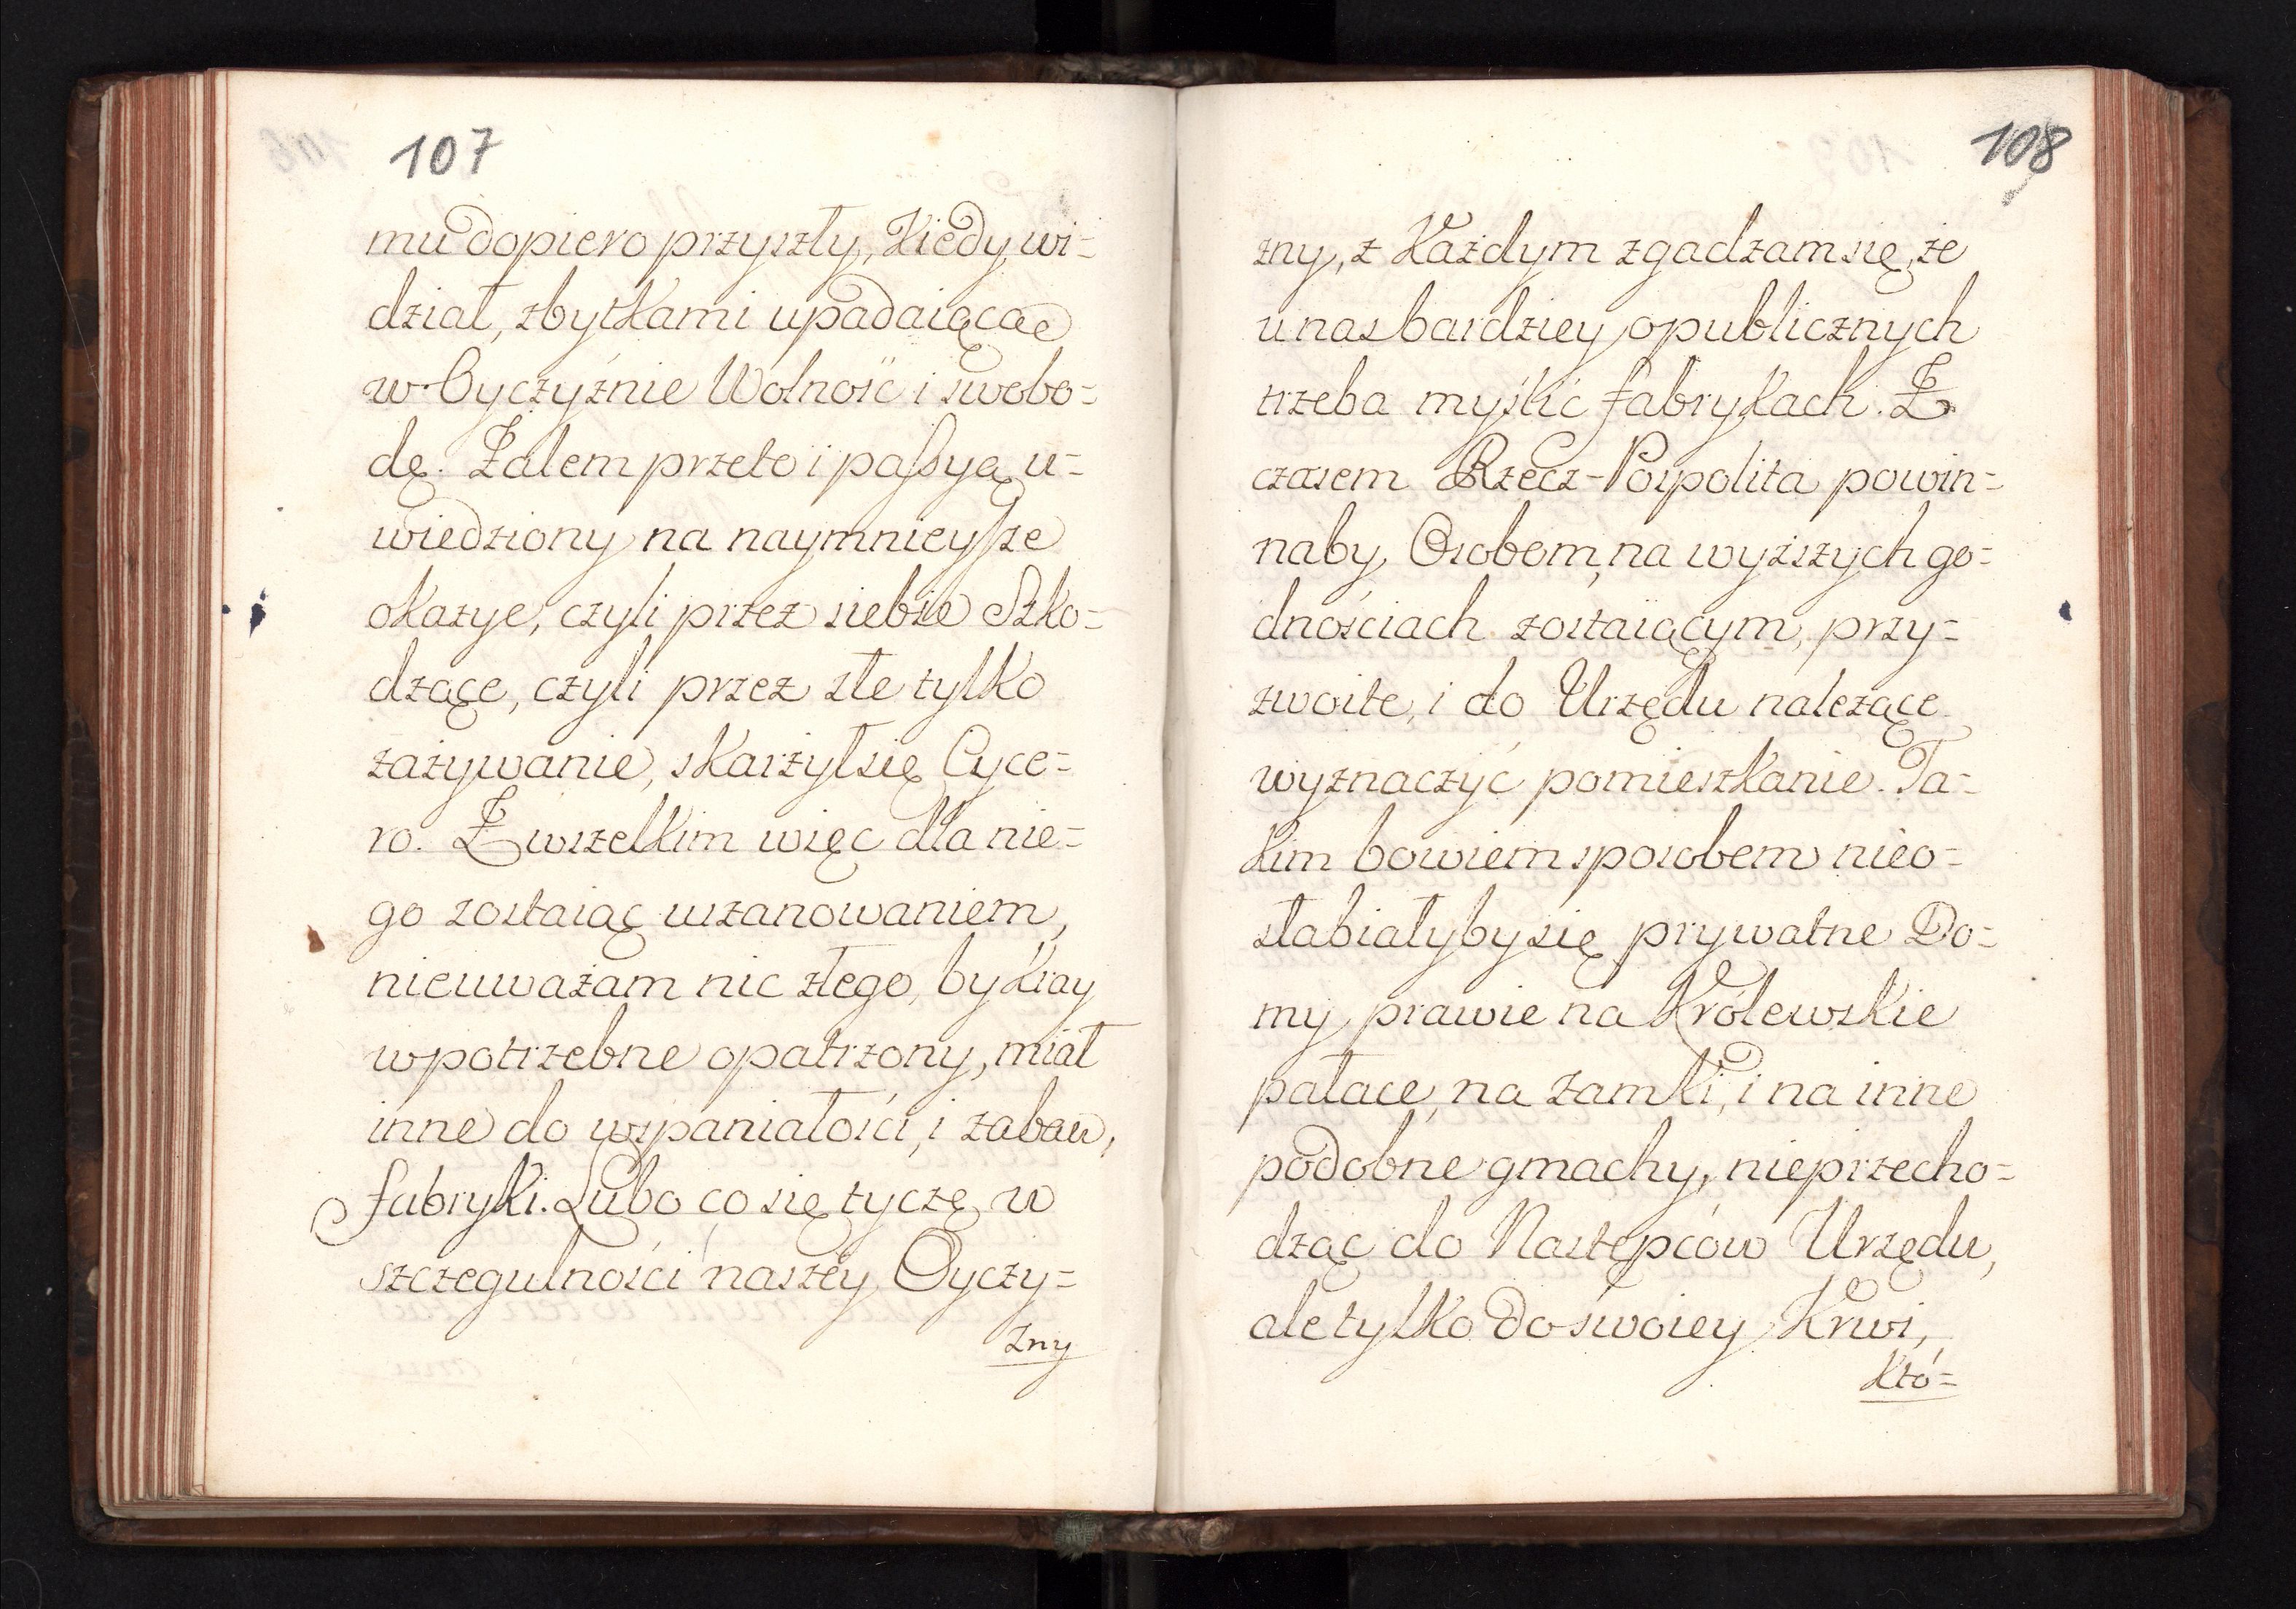 107
mu dopiero przyszły, Kiedy wi=
dział, zbytkami upadaiącąe
w Oyczyźnie Wolność i swobo=
dę. Żalem przeto i passyą u=
wiedziony na naymnieysze
okazye, czyli przez siebie Szko=
dzące, czyli przez złe tylko
zażywanie, skarżył się Cyce=
ro. Z wszelkim więc dla nie=
go zostaiąc uszanowaniem,
nieuważam nic złego, by Kray
w potrzebne opatrzony, miał
inne do wspaniałości, i zabaw,
fabryki. Lubo co się tyczę w
szczegulności naszey Oyczy=
zny
108
zny, z Każdym zgadzam się, że
u nas bardziey o publicznych
trzeba myślić fabrykach. Z
czasem Rzecz-Pospolita powin=
naby Osobom, na wyższych go=
dnościach zostaiącym, przy=
zwoite, i do Urzędu należące
wyznaczyć pomieszkanie. Ta=
kim bowiem sposobem nieo=
słabiałyby się prywatne Do=
my prawie na Królewskie
pałace, na zamki, i na inne
podobne gmachy, nieprzecho=
dząc do Następców Urzędu,
ale tylko do swoiey Krwi,
Któ=